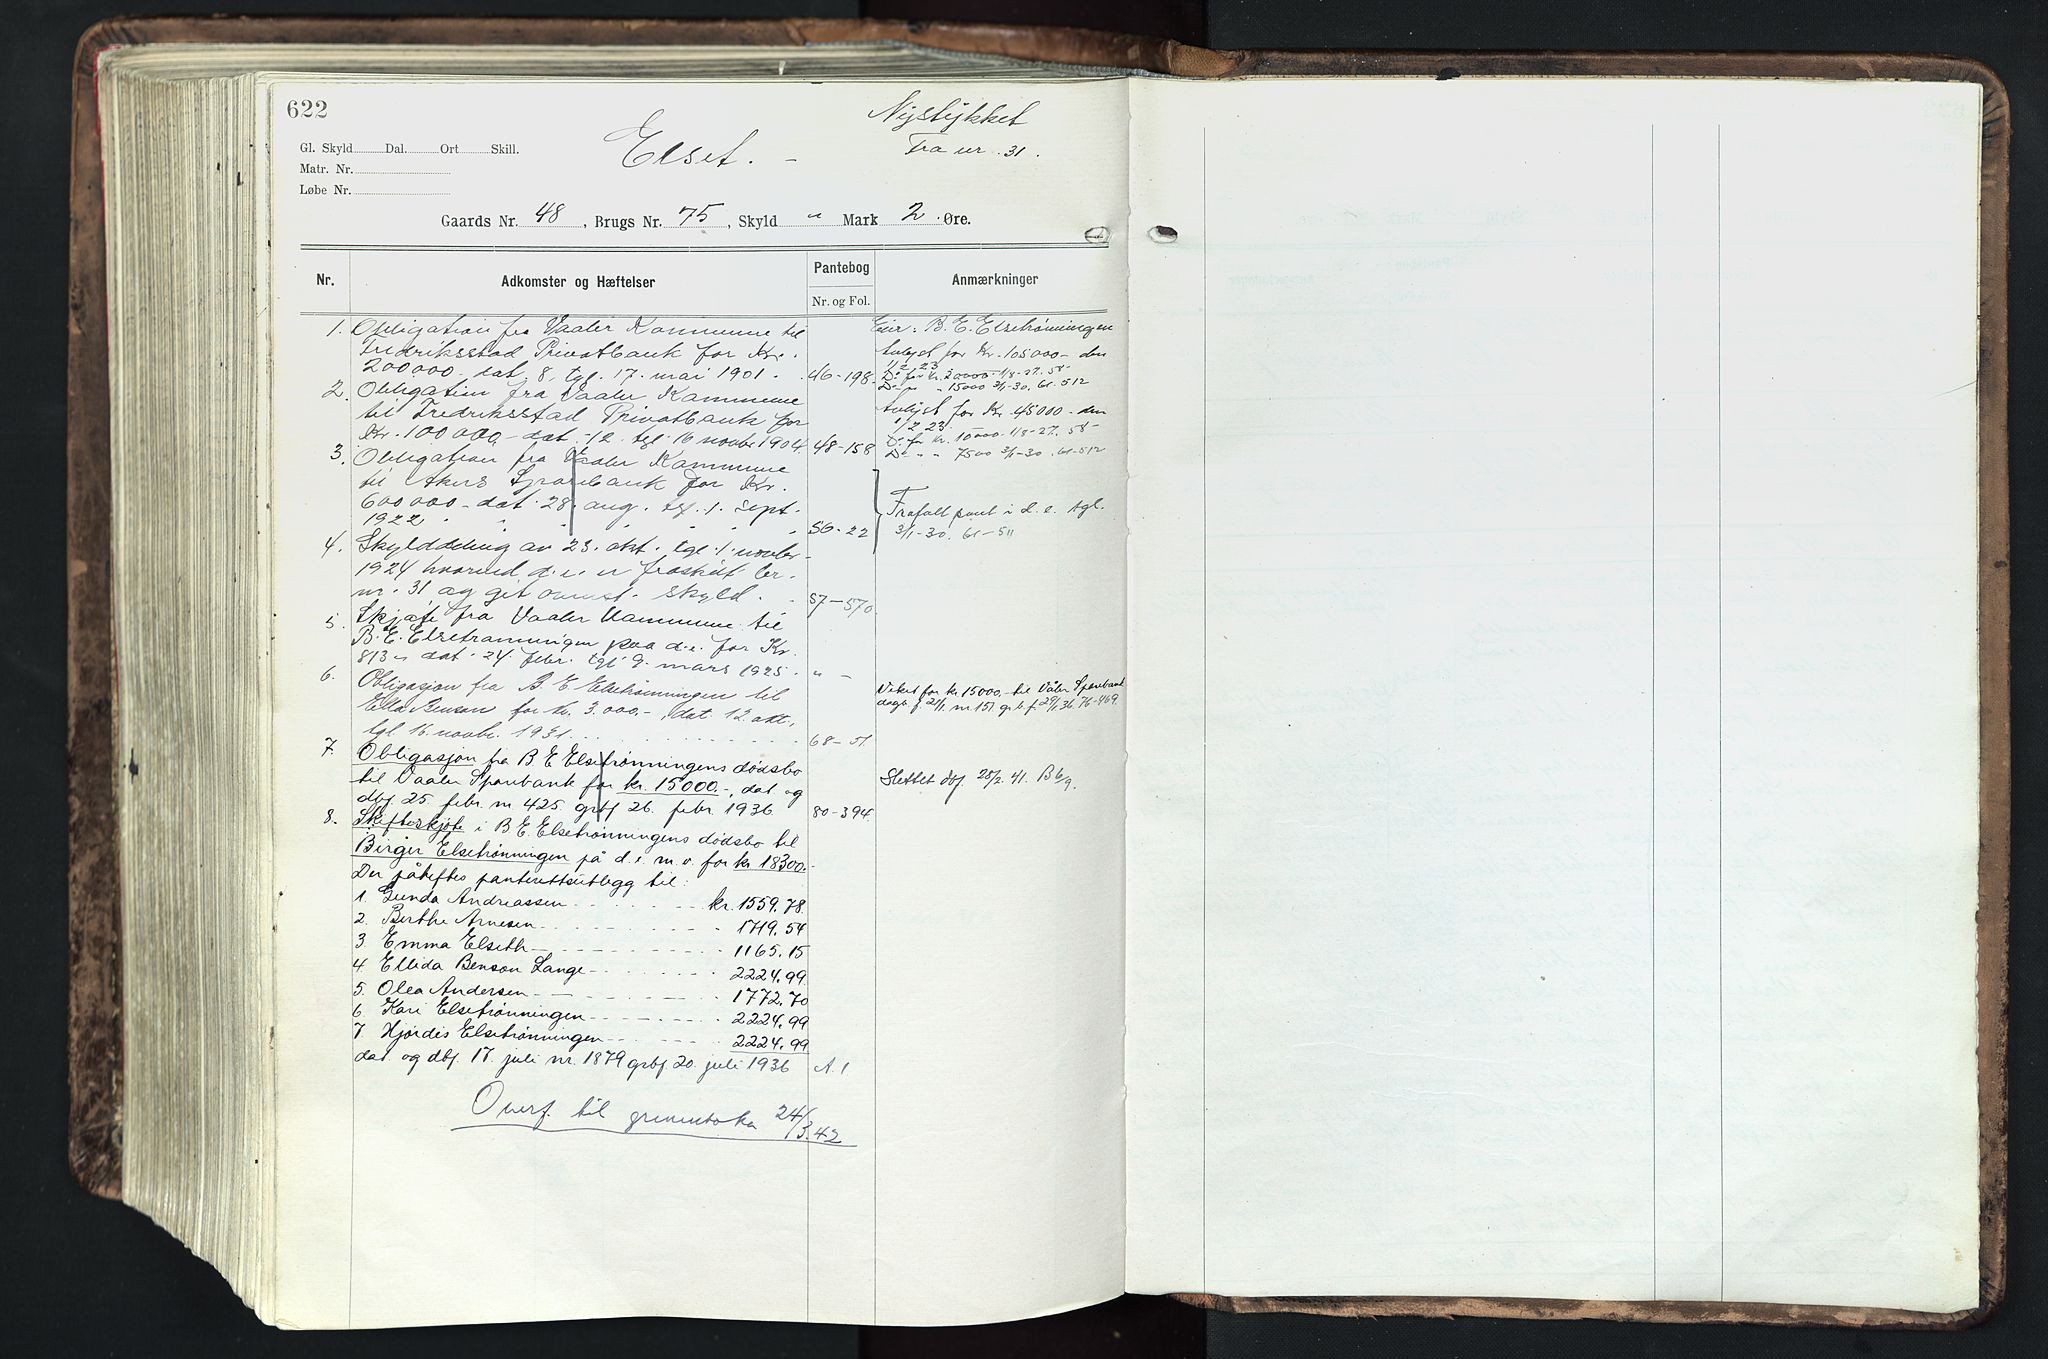 622
Nystykket
Elset. -
Fra nr. 31.
Gl. Skyld Dal. Ort Skill.
Matr. Nr.
Løbe Nr.
Gaards Nr. 48, Brugs Nr. 75, Skyld " Mark 2 Øre.
Nr. Adkomster og Hæftelser Pantebog Anmærkninger
Nr. og Fol.
1. Obligation fra Vaaler Kommune til
Fredriksstad Privatbank for Kr.
200000 - dat. 8, tgl. 17. mai 1901. 46-198.
Eier: B. E. Elsetrønningen
Avlyst for Kr. 105000- den
1/2 23
Do for Kr. 30000- 1/8-27. 58-
Do " " 15000 3/1-30. 61-512
2. Obligation fra Vaaler Kommune
til Fredriksstad Privatbank for
Kr. 100000- dat. 12. tgl. 16 novbr 1904. 48-158
Avlyst for Kr. 45000- den
1/2 23.
Do for Kr. 10000- 1/8-27. 58-
Do " " 7500 3/1-30. 61-512
3. Obligation fra Vaaler Kommune
til Akers Sparebank for Kr.
600000- dat. 28. aug. tgl. 1. sept.
1922 " " " " " 56-22
Frafalt pant i d. e. tgl.
3/1-30. 61-511
4. Skylddeling av 23. okt. tgl. 1. novbr
1924 hvorved d. e. er fraskilt br.
nr. 31 og git ovenst. skyld. 57-570
5. Skjøte fra Vaaler Kommune til
B. E. Elsetrønningen paa d. e. for Kr.
813 - dat. 24. febr. tgl. 9. mars 1925. " -
6. Obligasjon fra B. E. Elsetrønningen til
Ella Benson for kr. 3.000.-, dat. 12. okt.,
tgl. 16. novbr. 1931. 68-51.
Veket for kr. 15000.- til Våler Sparebank
dagb. f. 21/1 nr. 151 grb. f. 29/1 36. 76-469.
7. Obligasjon fra B E Elsetrønningens dødsbo
til Vaaler Sparebank for kr. 15000.-, dat og
dbf. 25. febr. nr 425 grbf 26. febr 1936 80-394.
Slettet dbf. 28/2. 41. B 6/9.
8. Skifteskjøte i B. E. Elsetrønningens dødsbo til
Birger Elsetrønningen på d. e. m. v. for kr 18300.-
Der påheftes panterettsutlegg til:
1. Gunda Andreassen kr. 1559.78
2. Berthe Arnesen " 1719.54
3. Emma Elseth " 1165.15
4. Ellida Benson Lange " 2224.99
5. Olea Andersen " 1772.70
6. Kari Elsetrønningen " 2224.99
7. Hjørdis Elsetrønningen " 2224.99
dat. og dbf. 17. juli nr. 1879 grbf. 20. juli 1936 A. 1
Overf. til grunnboka 24/3.42